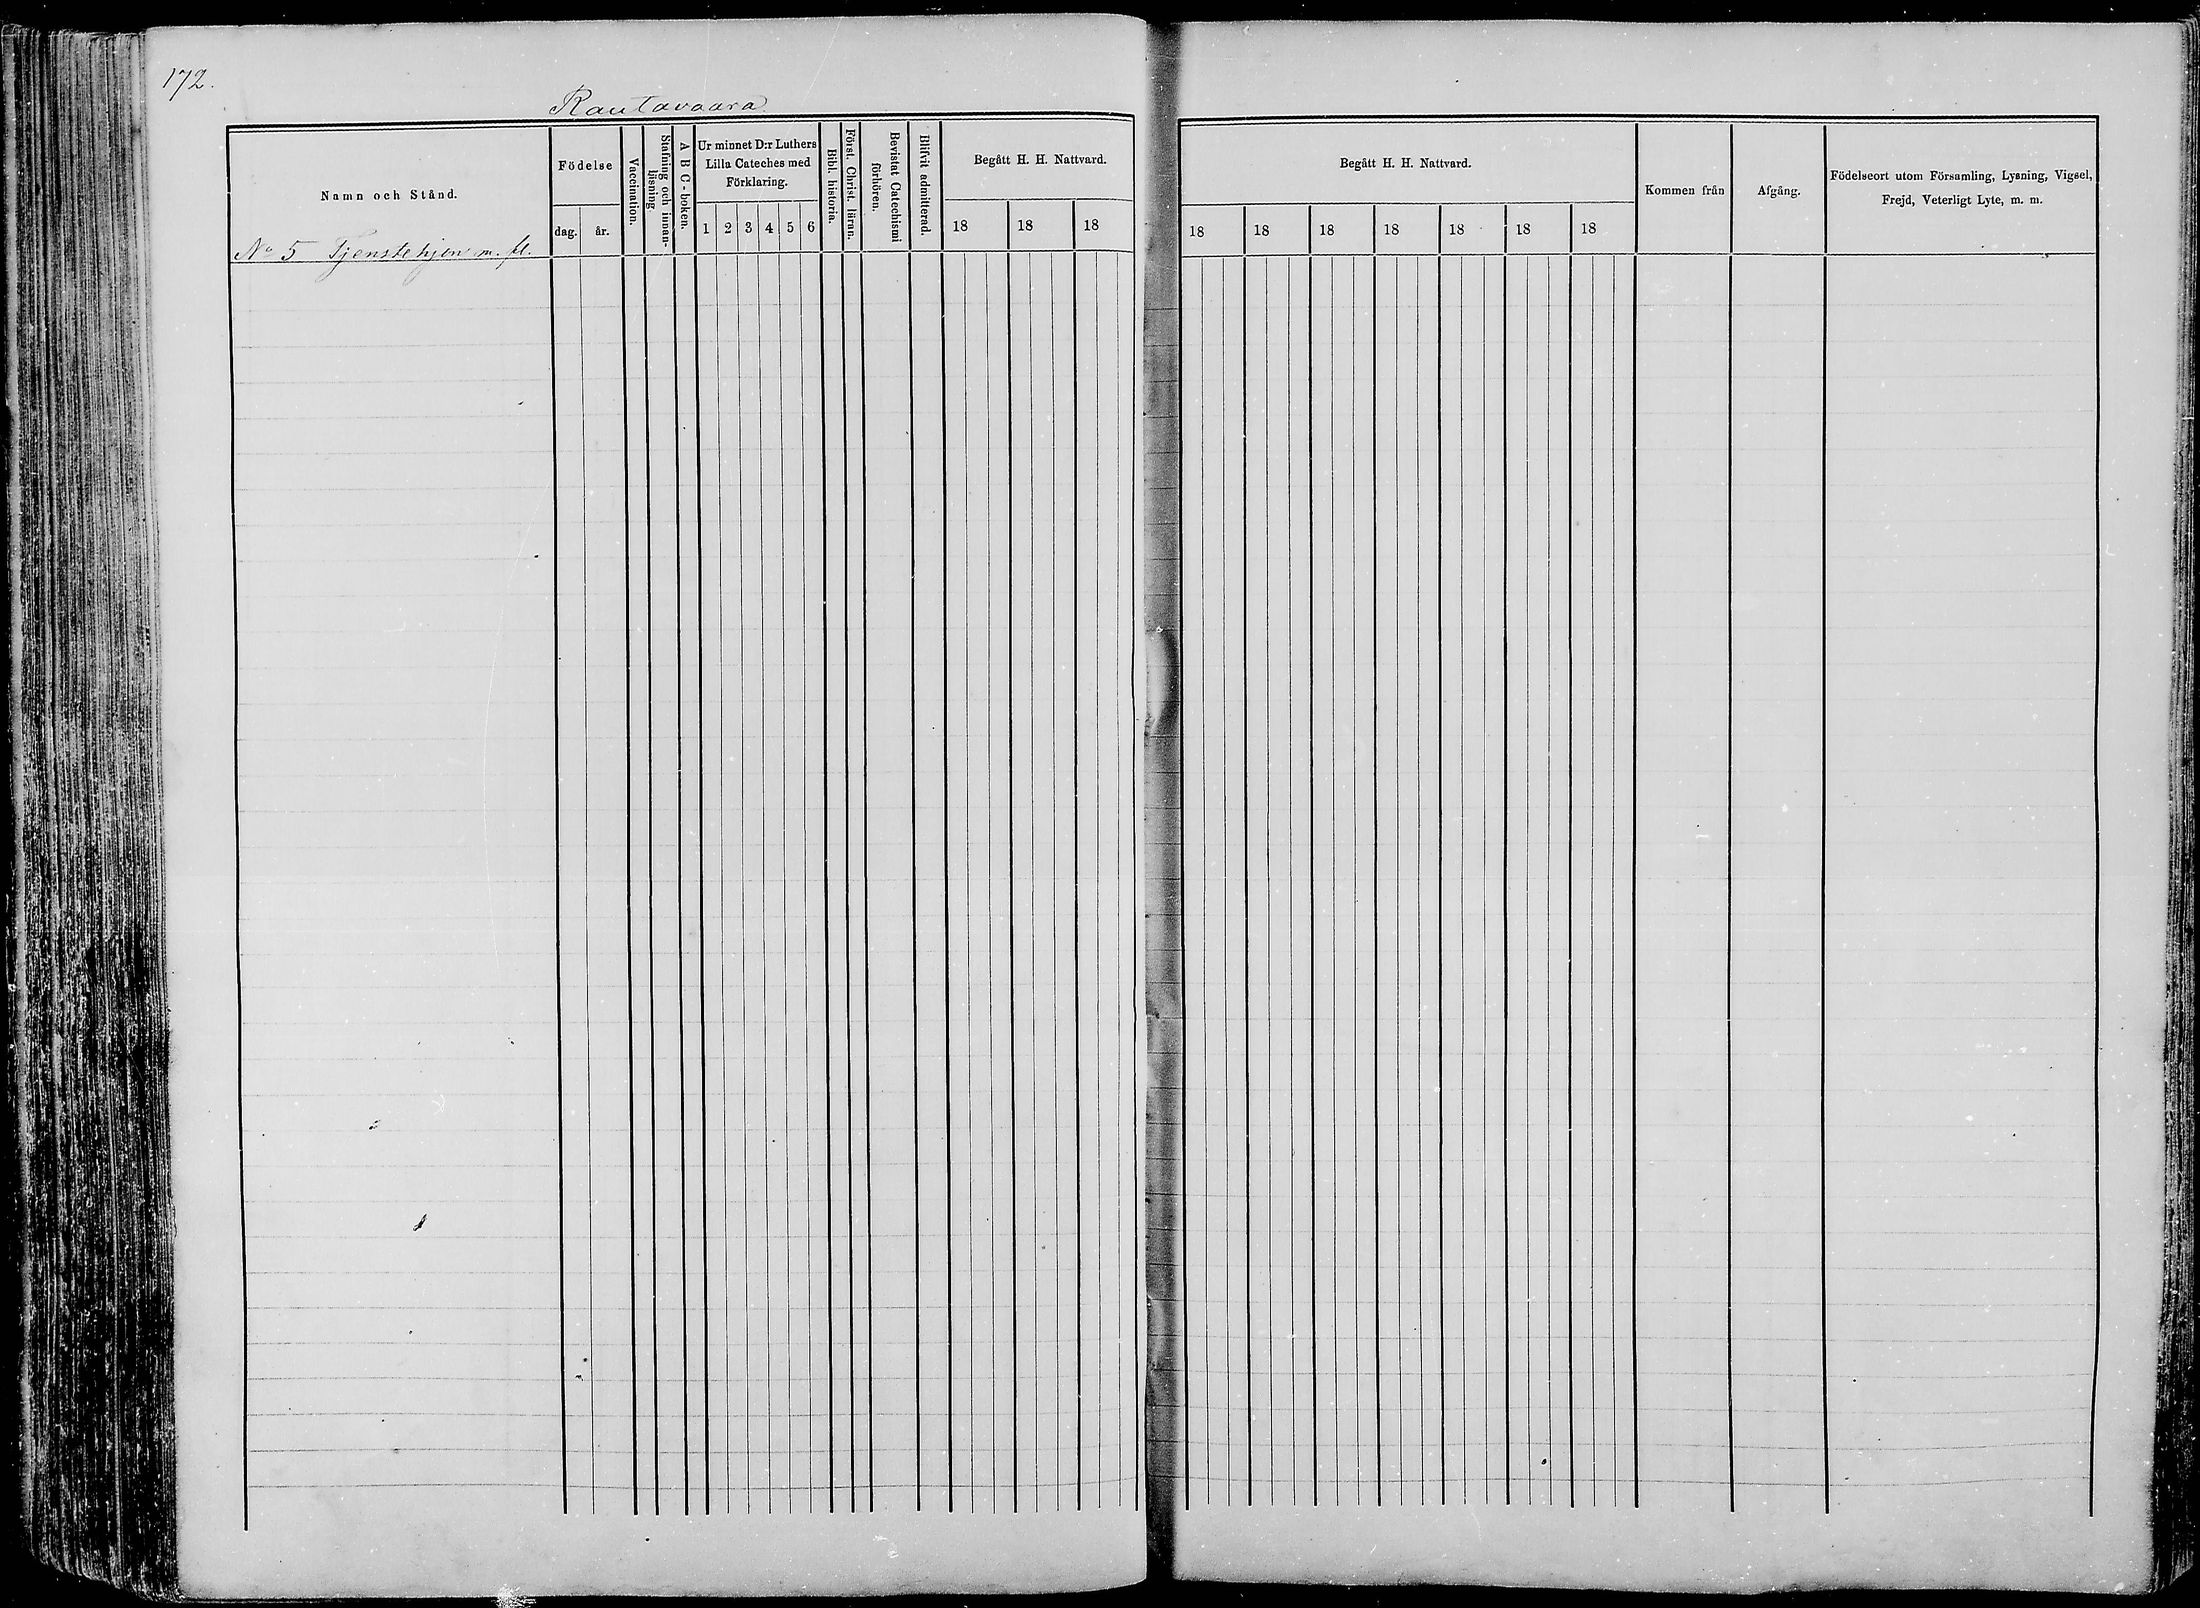 172.
Rautavaara
Namn och Stånd.
Födelse
dag.
år.
Vaccination.
Stafning och innan-
läsning
A B C-boken.
Ur minnet D:r Luthers
Lilla Cateches med
Förklaring.
1 2 3 4 5 6
Bibl. historia.
Först. Christ. läran.
Bevistat Catechismi
förhören.
Blifvit admitterad.
Begått H. H. Nattvard.
18 18 18
Begått H. H. Nattvard.
18 18 18 18 18 18 18
Kommen från
Afgång.
Födelseort utom Församling, Lysning, Vigsel,
Frejd, Veterligt Lyte, m. m.
No 5 Tjenstehjon m. fl.